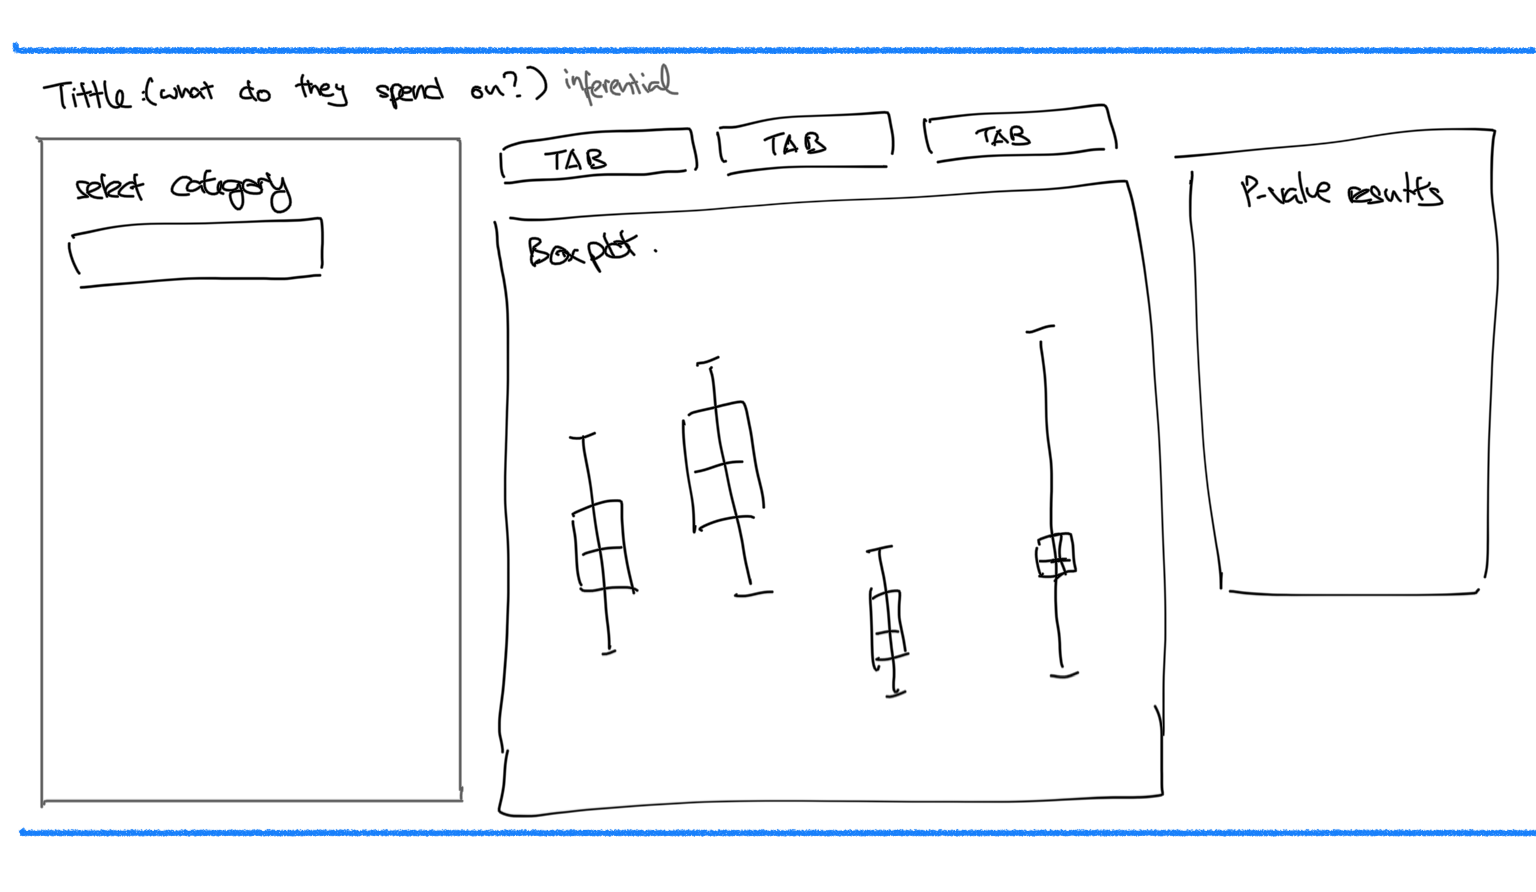 Tittle:(what do they spend on?) inferential
select category
TAB
TAB
TAB
Boxplot.
P-value results